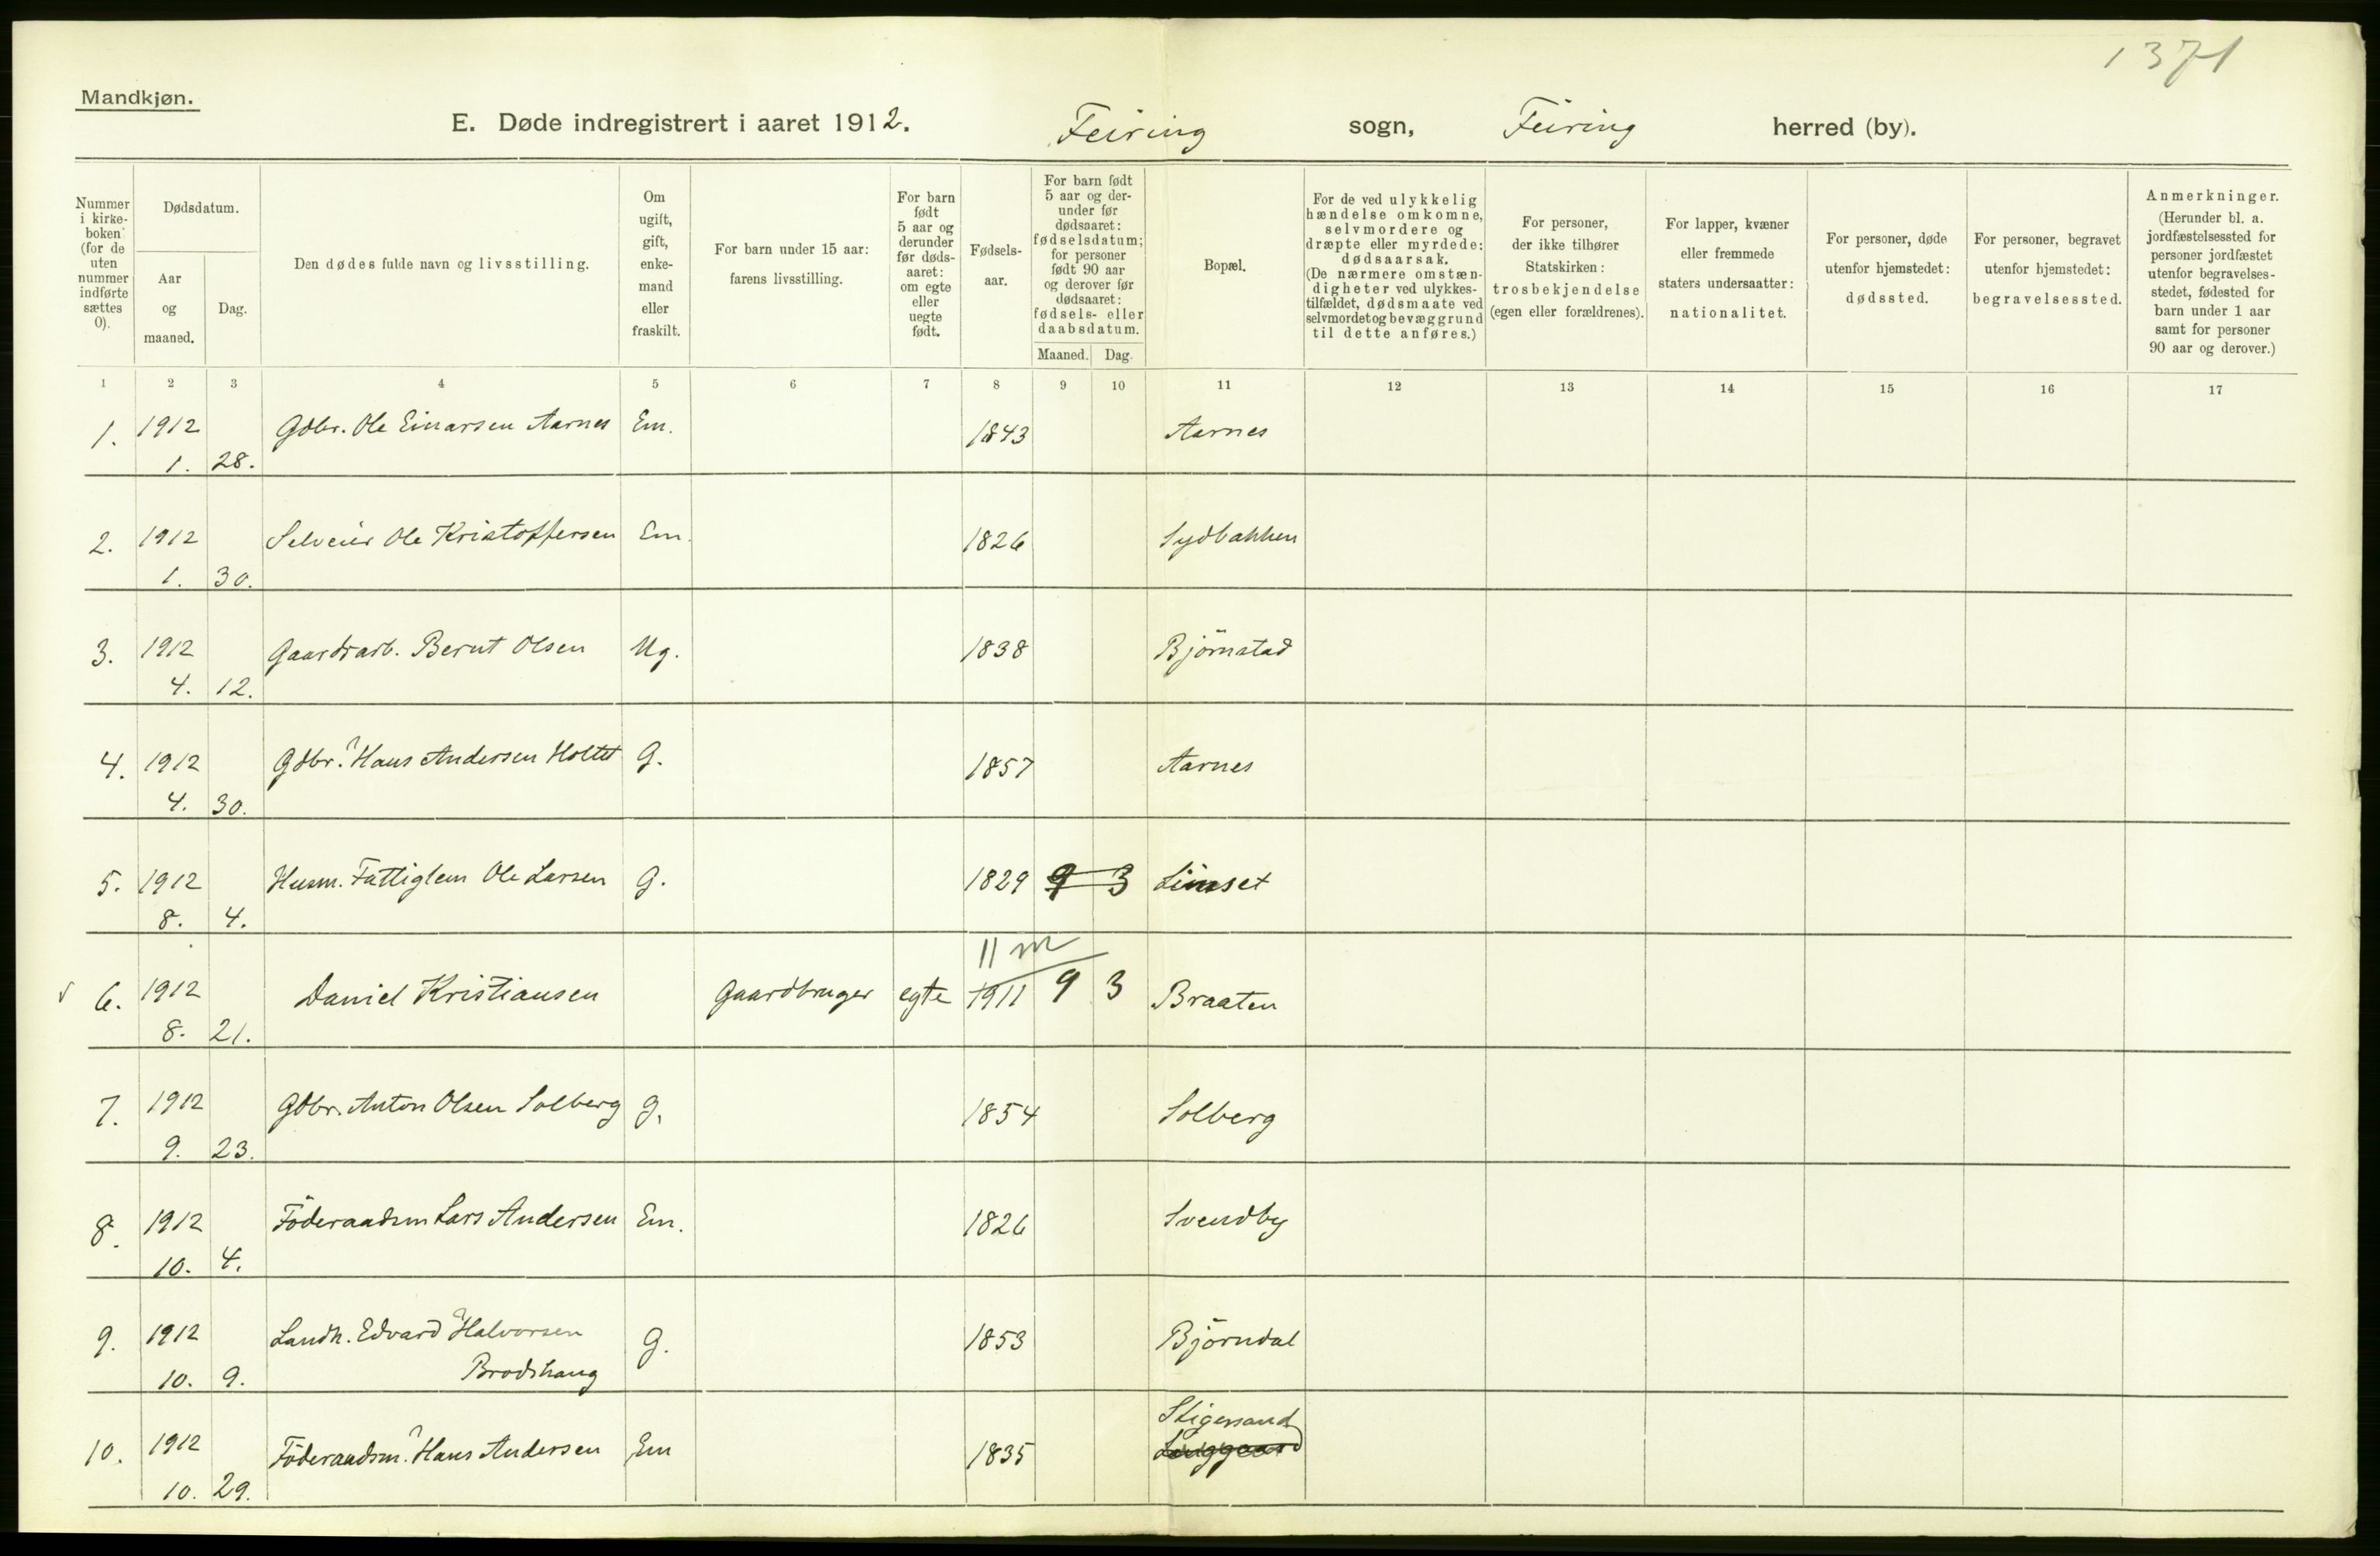 1371
Mandkjøn.
E. Døde indregistrert i aaret 1912. Feiring sogn, Feiring herred (by).
Nummer i kirkeboken (for de uten nummer indførte sættes 0).
Dødsdatum.
Aar og maaned.
Dag.
Den dødes fulde navn og livsstilling.
Om ugift, gift, enkemand eller fraskilt.
For barn under 15 aar: farens livsstilling.
For barn født 5 aar og derunder før dødsaaret: om egte eller uegte født.
Fødselsaar.
For barn født 5 aar og derunder før dødsaaret: fødselsdatum; for personer født 90 aar og derover før dødsaaret: fødsels- eller daabsdatum.
Maaned. Dag.
Bopæl.
For de ved ulykkelig hændelse omkomne, selvmordere og dræpte eller myrdede: dødsaarsak. (De nærmere omstændigheter ved ulykkestilfældet, dødsmaate ved selvmordet og bevæggrund til dette anføres.)
For personer, der ikke tilhører Statskirken: trosbekjendelse (egen eller forældrenes).
For lapper, kvæner eller fremmede staters undersaatter: nationalitet.
For personer, døde utenfor hjemstedet: dødssted.
For personer, begravet utenfor hjemstedet: begravelsessted.
Anmerkninger. (Herunder bl. a. jordfæstelsessted for personer jordfæstet utenfor begravelsesstedet, fødested for barn under 1 aar samt for personer 90 aar og derover.)
1 2 3 4 5 6 7 8 9 10 11 12 13 14 15 16 17
1. 1912 Gdbr. Ole Einarsen Aarnes Em. 1843 Aarnes
1. 28.
2. 1912 Selveier Ole Kristoffersen Em. 1826 Sydbakken
1. 30.
3. 1912 Gaardsarb. Bernt Olsen Ug. 1838 Björnstad
4. 12.
4. 1912 Gdbr. Hans Andersen Holtet G. 1857 Aarnes
4. 30.
5. 1912 Husm. Fattiglem Ole Larsen G. 1829 9 3 Linset
8. 4.
11 m
6. 1912 Daniel Kristiansen Gaardbruger egte 1911 9 3 Braaten
8. 21.
7. 1912 Gdbr. Anton Olsen Solberg G. 1854 Solberg
9. 23.
8. 1912 Föderaadsm Lars Andersen Em. 1826 Svendby
10. 4.
9. 1912 Landh. Edvard Halvorsen G. 1853 Björndal
10. 9. Brodshaug
Stigersand
10. 1912 Föderaadsm. Hans Andersen Em 1835
10. 29.